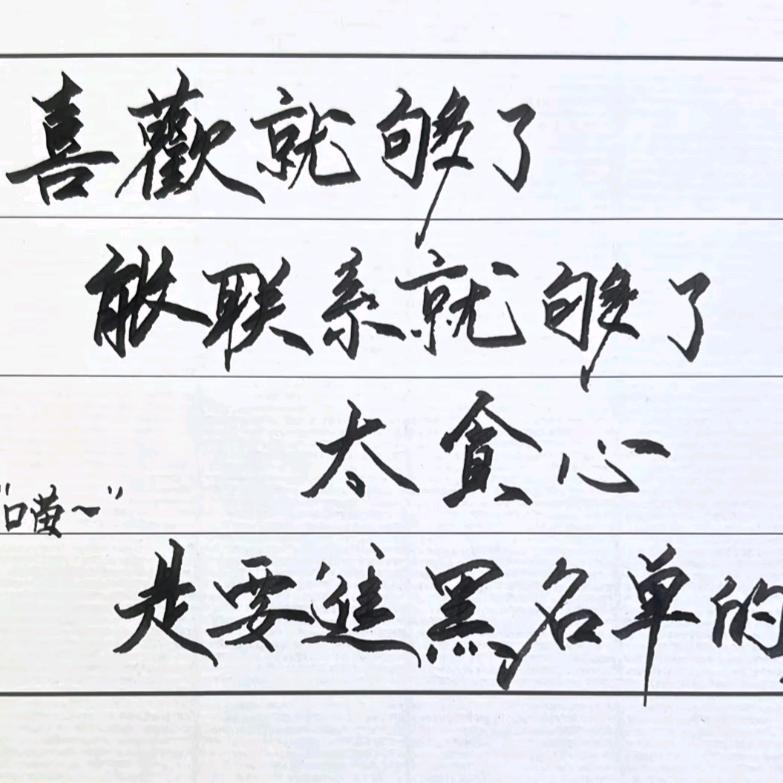 喜歡就够了
能联系就够了
太貪心
"喵~"
是要進黑名单的